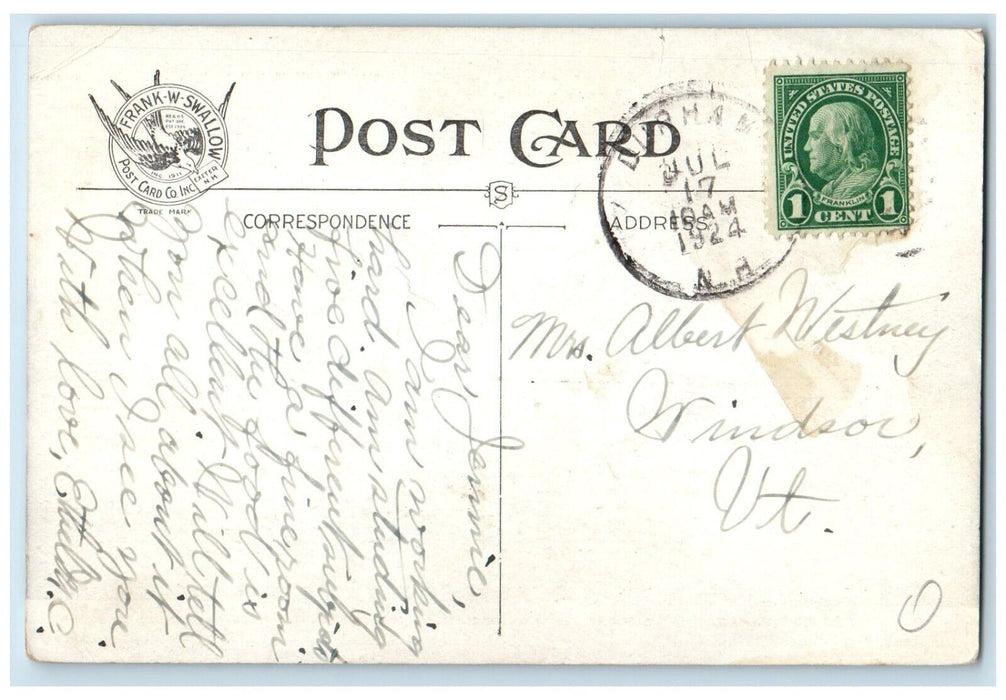 FRANK·W·SWALLOW
POST CARD CO. INC.
EXETER N.H.
INC 1911
TRADE MARK
POST CARD
S
CORRESPONDENCE
ADDRESS
DURHAM
JUL
17
10 AM
1924
N.H.
UNITED STATES POSTAGE
FRANKLIN
1 CENT 1
Dear Jennie,
I am working
hard. Am studing
five different subjects
Have a fine room
and the food is
excellent. Will tell
you all about it
when I see you.
With love, C.
Mrs. Albert Westney
Windsor,
Vt.